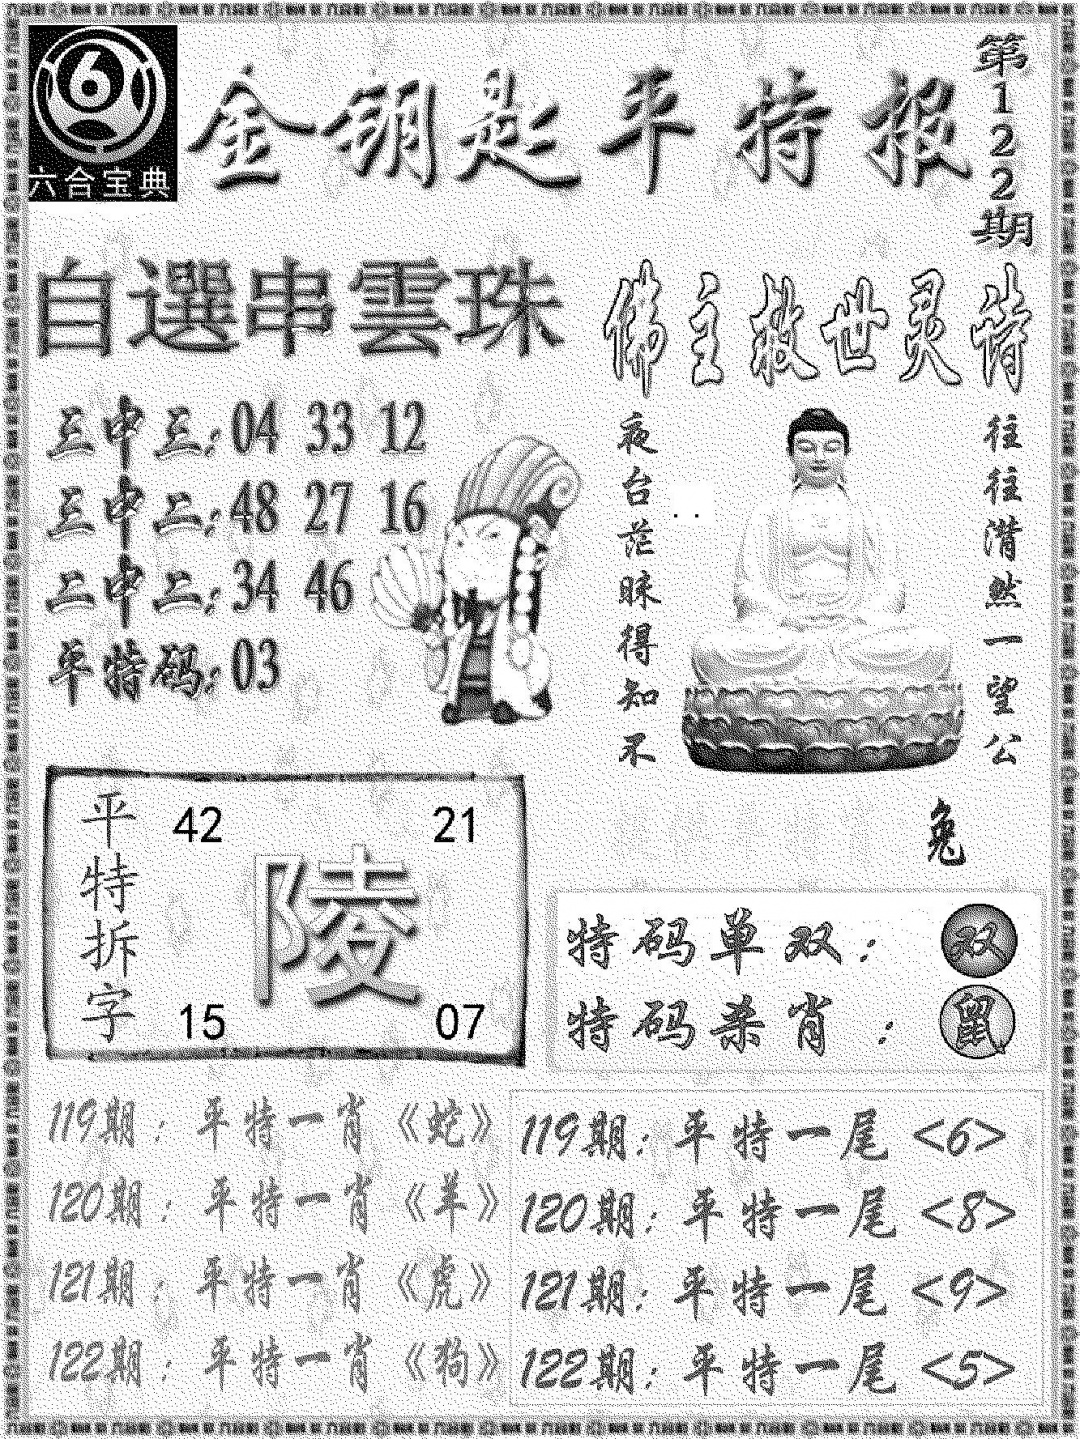 六合宝典
金钥匙平特报
第122期
自選串雲珠
三中三:04 33 12
三中二:48 27 16
二中二:34 46
平特码:03
佛主救世灵诗
往往潸然一望公
夜台茫昧得知不
兔
平特拆字
42 21
陵
15 07
特码单双: 双
特码杀肖: 鼠
119期:平特一肖《蛇》
120期:平特一肖《羊》
121期:平特一肖《虎》
122期:平特一肖《狗》
119期:平特一尾<6>
120期:平特一尾<8>
121期:平特一尾<9>
122期:平特一尾<5>